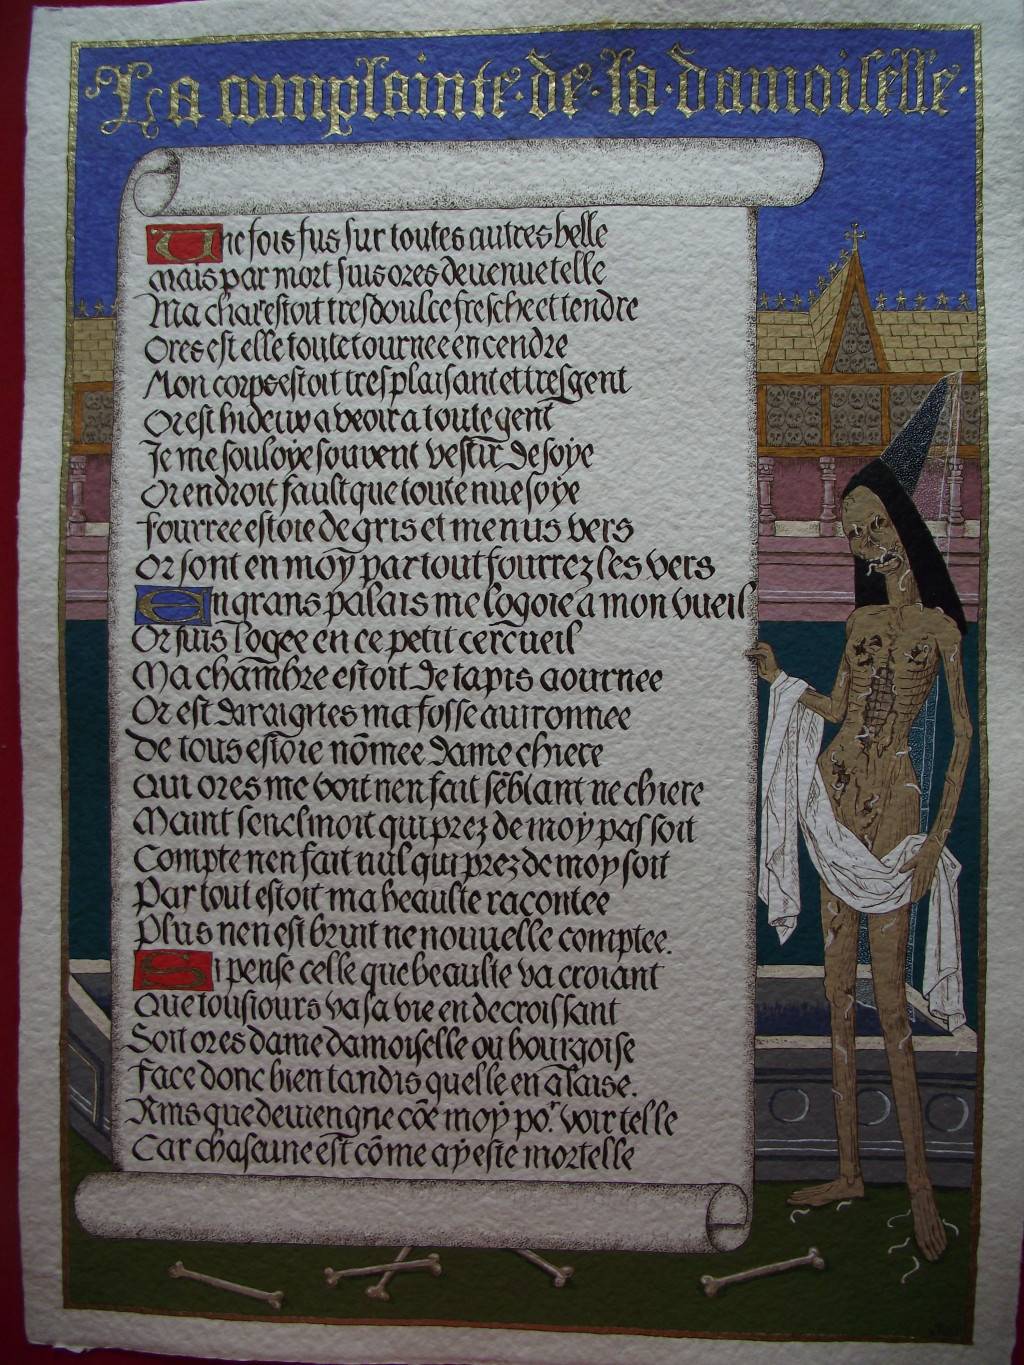 La complainte·de·la·damoiselle·
Une fois fus sur toutes autres belle
Mais par mort suis ores devenue telle
Ma char estoit tres doulce fresche et tendre
Ores est elle toute tournee en cendre
Mon corps estoit tres plaisant et tres gent
Or est hideux a veoir a toute gent
Je me souloye souvent vestir de soye
Or endroit fault que toute nue soye
fourree estoie de gris et menus vers
Or sont en moy par tout fourrez les vers
En grans palais me logoie a mon vueil
Or suis logee en ce petit cercueil
Ma chambre estoit de tapis aournee
Or est daraignes ma fosse auironnee
De tous estoie nōmee dame chiere
Qui ores me voit nen fait sēblant ne chiere
Maint senclinoit qui prez de moy passoit
Compte nen fait nul qui prez de moy soit
Par tout estoit ma beaulte racontee
Plus nen est bruit ne nouuelle comptee.
Si pense celle que beaulte va croiant
Que tousiours va sa vie en decroissant
Soit ores dame damoiselle ou bourgoise
Face donc bien tandis quelle en a laise.
Ains que deuiengne cōe moy por. voir telle
Car chascune est cōme ay este mortelle